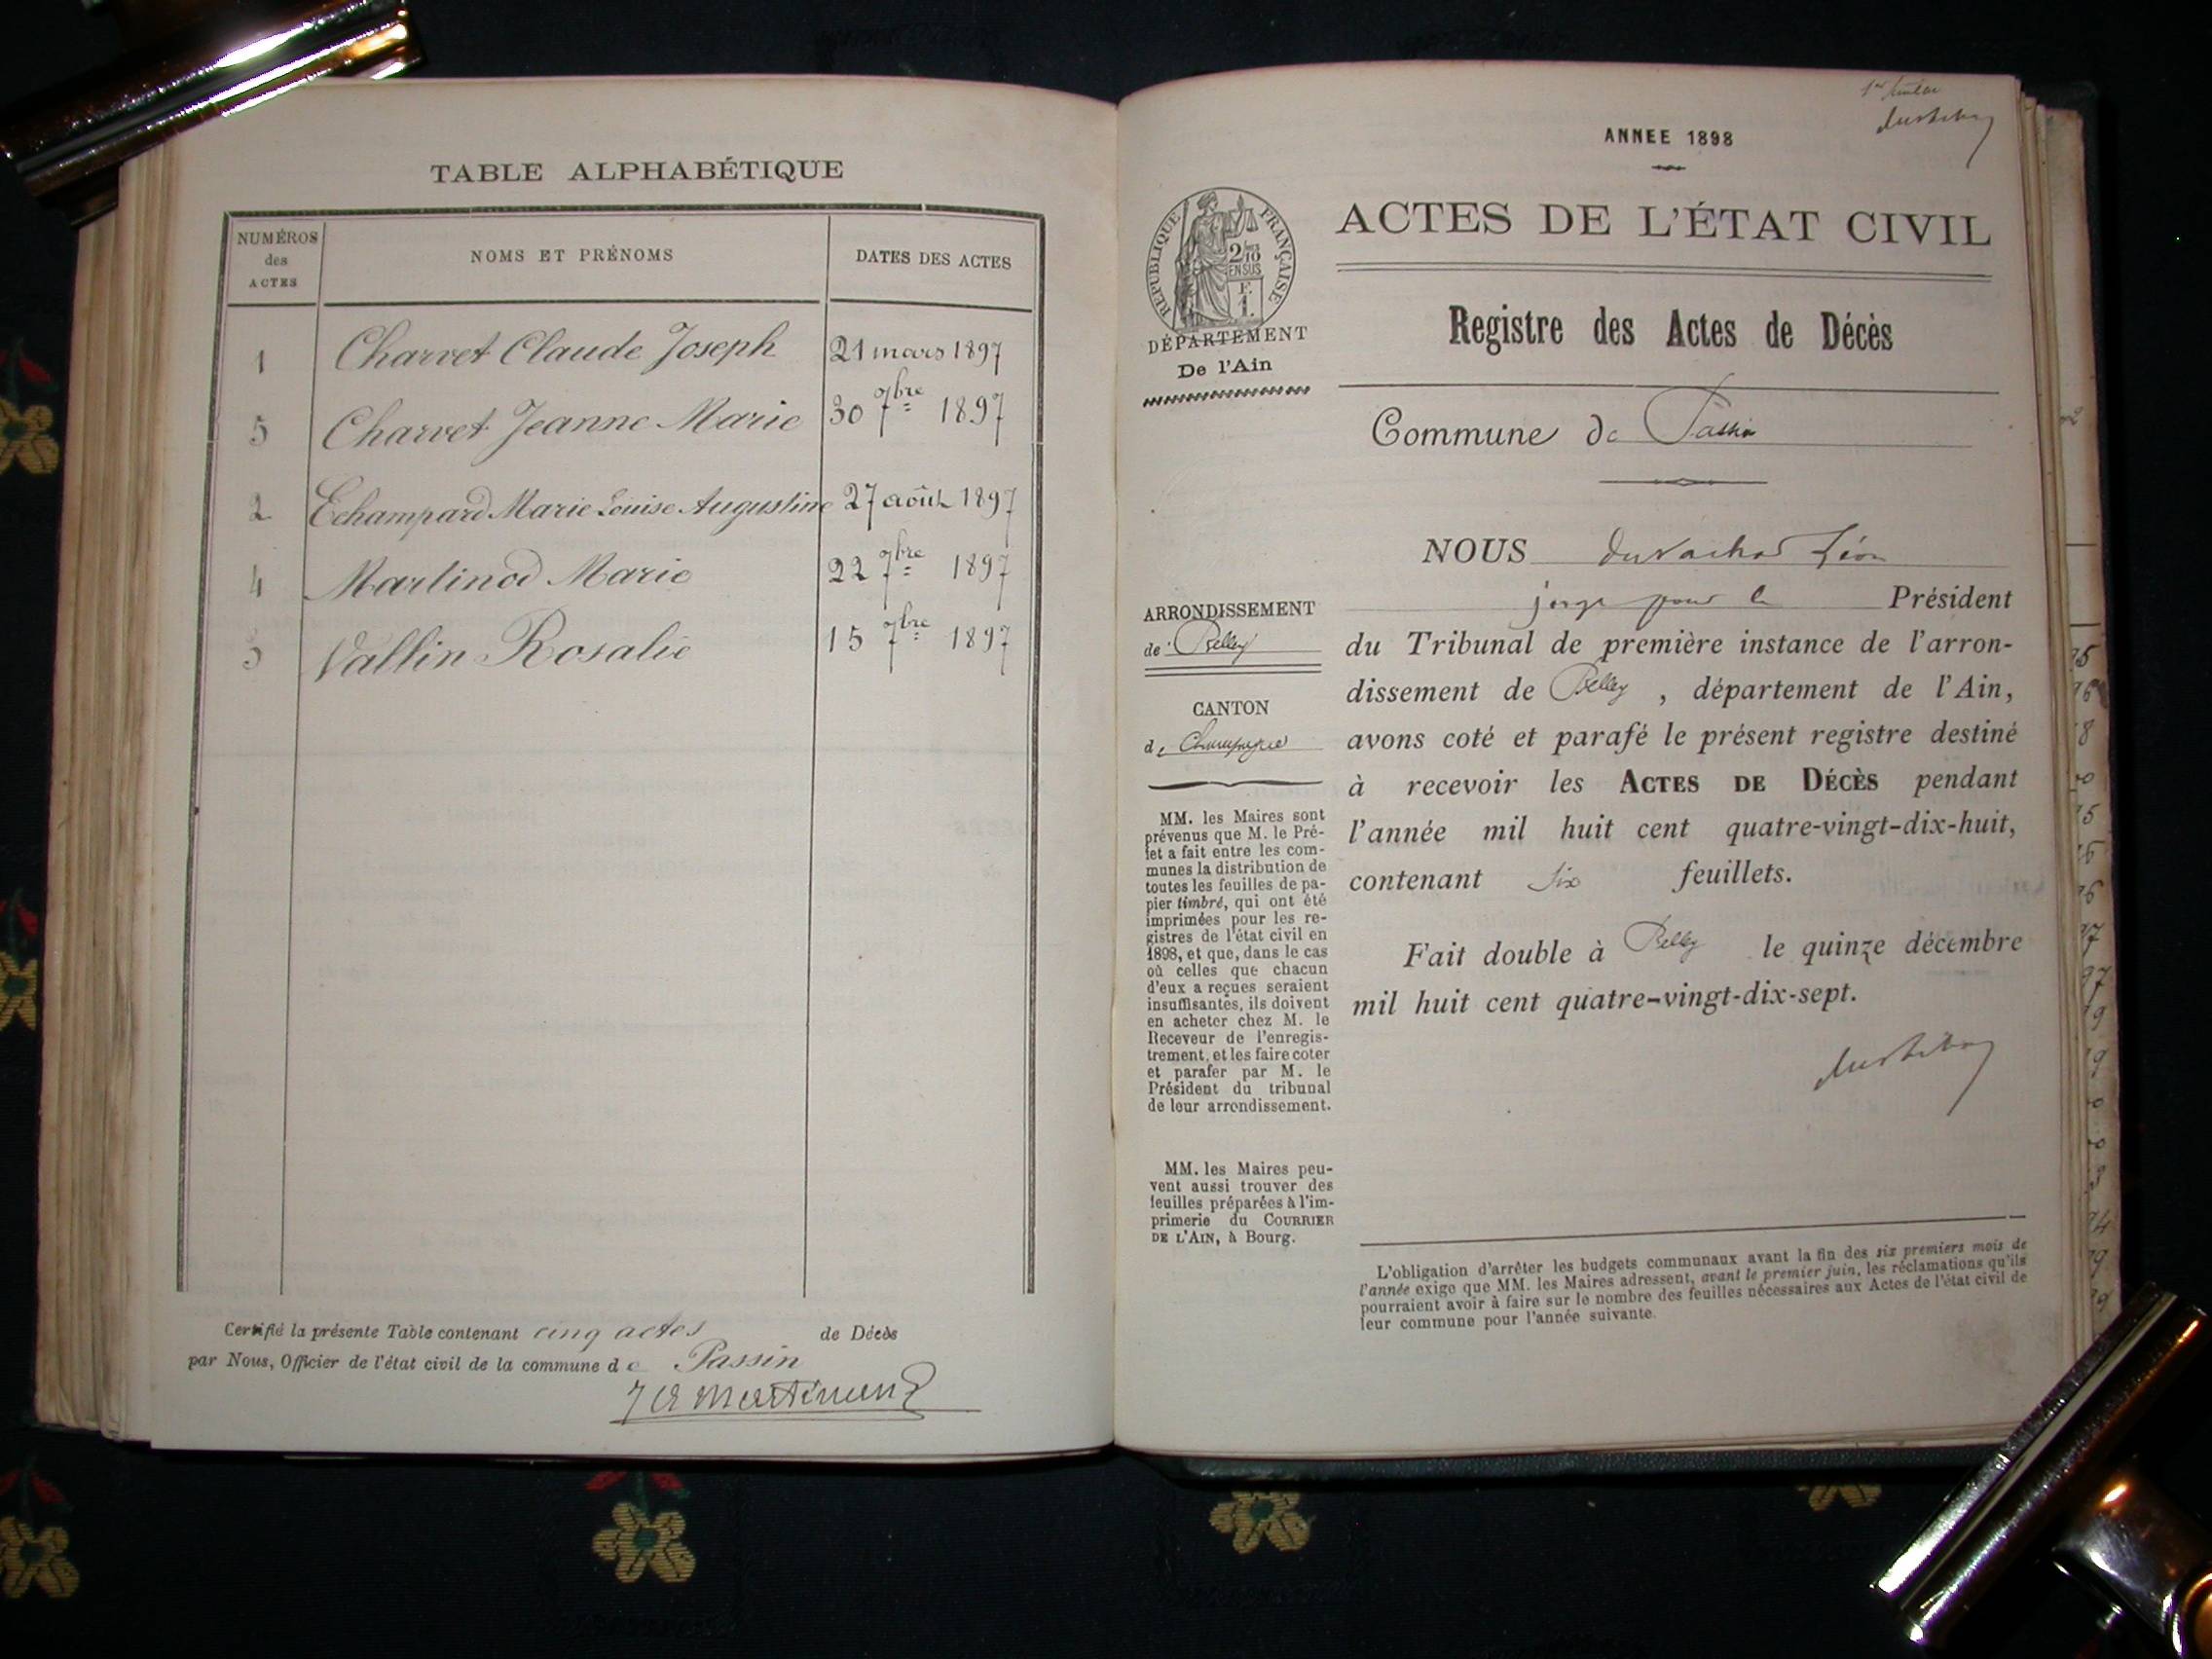 TABLE ALPHABÉTIQUE
NUMÉROS des ACTES
NOMS ET PRÉNOMS
DATES DES ACTES
1 Charvet Claude Joseph 21 mars 1897
5 Charvet Jeanne Marie 30 7bre 1897
2 Echampard Marie Louise Augustine 27 août 1897
4 Martinod Marie 22 7bre 1897
3 Vallin Rosalie 15 7bre 1897
Certifié la présente Table contenant cinq actes de Décès
par Nous, Officier de l'état civil de la commune de Passin
ANNEE 1898
ACTES DE L'ÉTAT CIVIL
RÉPUBLIQUE FRANÇAISE
2/10
EN SUS
F.
1.
DÉPARTEMENT
De l'Ain
Registre des Actes de Décès
Commune de Passin
ARRONDISSEMENT
de Belley
CANTON
de Champagne
MM. les Maires sont
prévenus que M. le Pré-
fet a fait entre les com-
munes la distribution de
toutes les feuilles de pa-
pier timbré, qui ont été
imprimées pour les re-
gistres de l'état civil en
1898, et que, dans le cas
où celles que chacun
d'eux a reçues seraient
insuffisantes, ils doivent
en acheter chez M. le
Receveur de l'enregis-
trement, et les faire coter
et parafer par M. le
Président du tribunal
de leur arrondissement.
MM. les Maires peu-
vent aussi trouver des
feuilles préparées à l'im-
primerie du COURRIER
DE L'AIN, à Bourg.
NOUS Léon
juge pour le Président
du Tribunal de première instance de l'arron-
dissement de Belley, département de l'Ain,
avons coté et parafé le présent registre destiné
à recevoir les ACTES DE DÉCÈS pendant
l'année mil huit cent quatre-vingt-dix-huit,
contenant six feuillets.
Fait double à Belley le quinze décembre
mil huit cent quatre-vingt-dix-sept.
L'obligation d'arrêter les budgets communaux avant la fin des six premiers mois de
l'année exige que MM. les Maires adressent, avant le premier juin, les réclamations qu'ils
pourraient avoir à faire sur le nombre des feuilles nécessaires aux Actes de l'état civil de
leur commune pour l'année suivante.